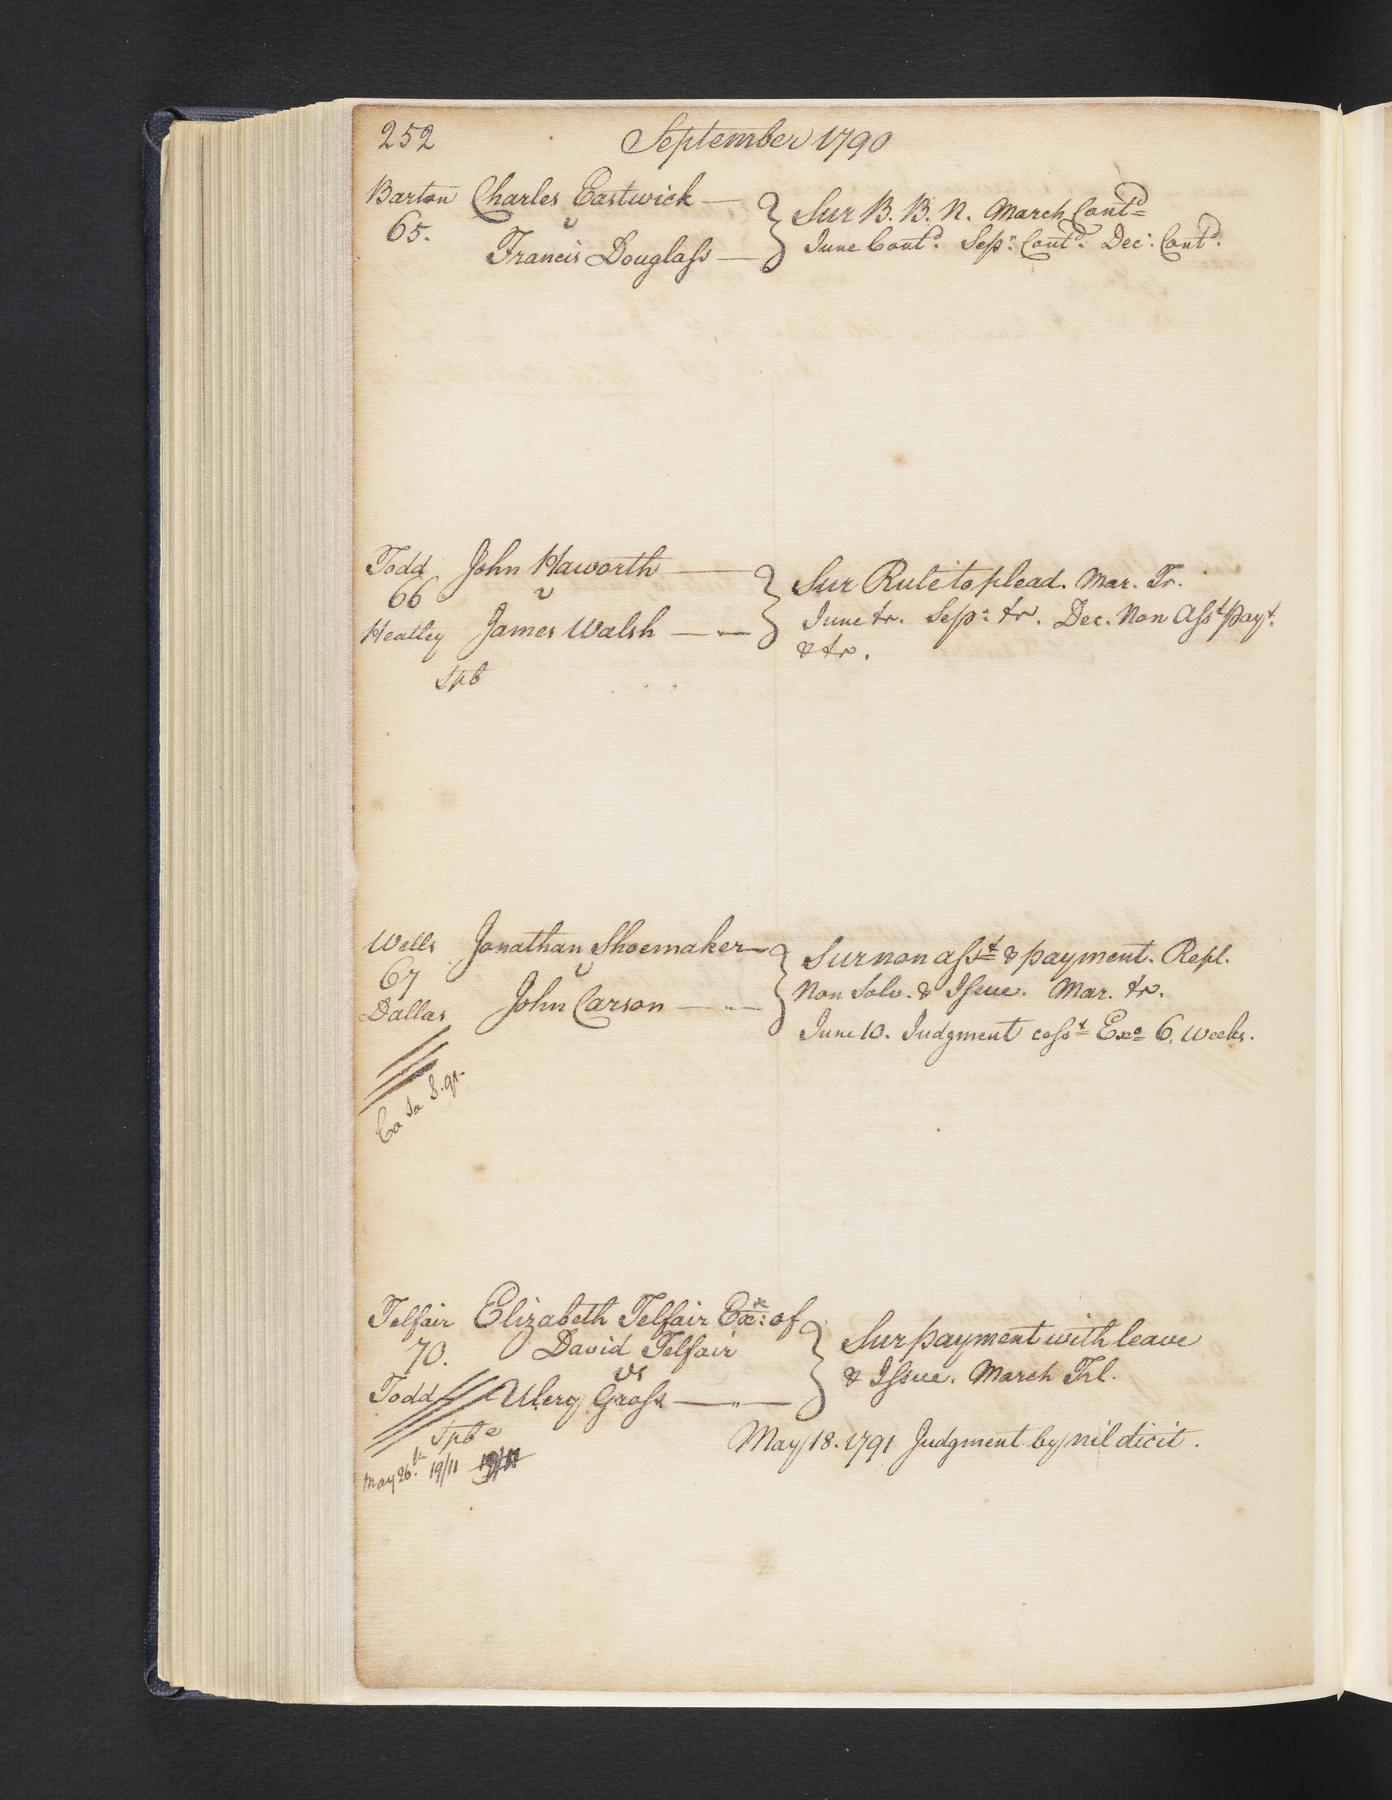 252 September 1790
Barton Charles Eastwick
65. v
Francis Douglass
Sur B. B. N. March Contd
June Contd. Sepr. Contd. Decr. Contd.
Todd John Haworth
66 v
Heatley James Walsh
Spb
Sur Rule to plead. Mar. Tr.
June tr. Sepr. tr. Dec. Non Asst Payt.
& tr.
Wells Jonathan Shoemaker
67 v
Dallas John Carson
Sur non asst & payment. Repl.
Non Solv. & Issue. Mar. tr.
June 10. Judgment Exo 6. weeks.
Ca Sa S. 91.
Telfair Elizabeth Telfair Exx: of
70. David Telfair
vs
Todd Gross
Spb
May 26th. 19/11
Sur payment with leave
& Issue. March Trl.
May 18. 1791 Judgment by nil dicit.